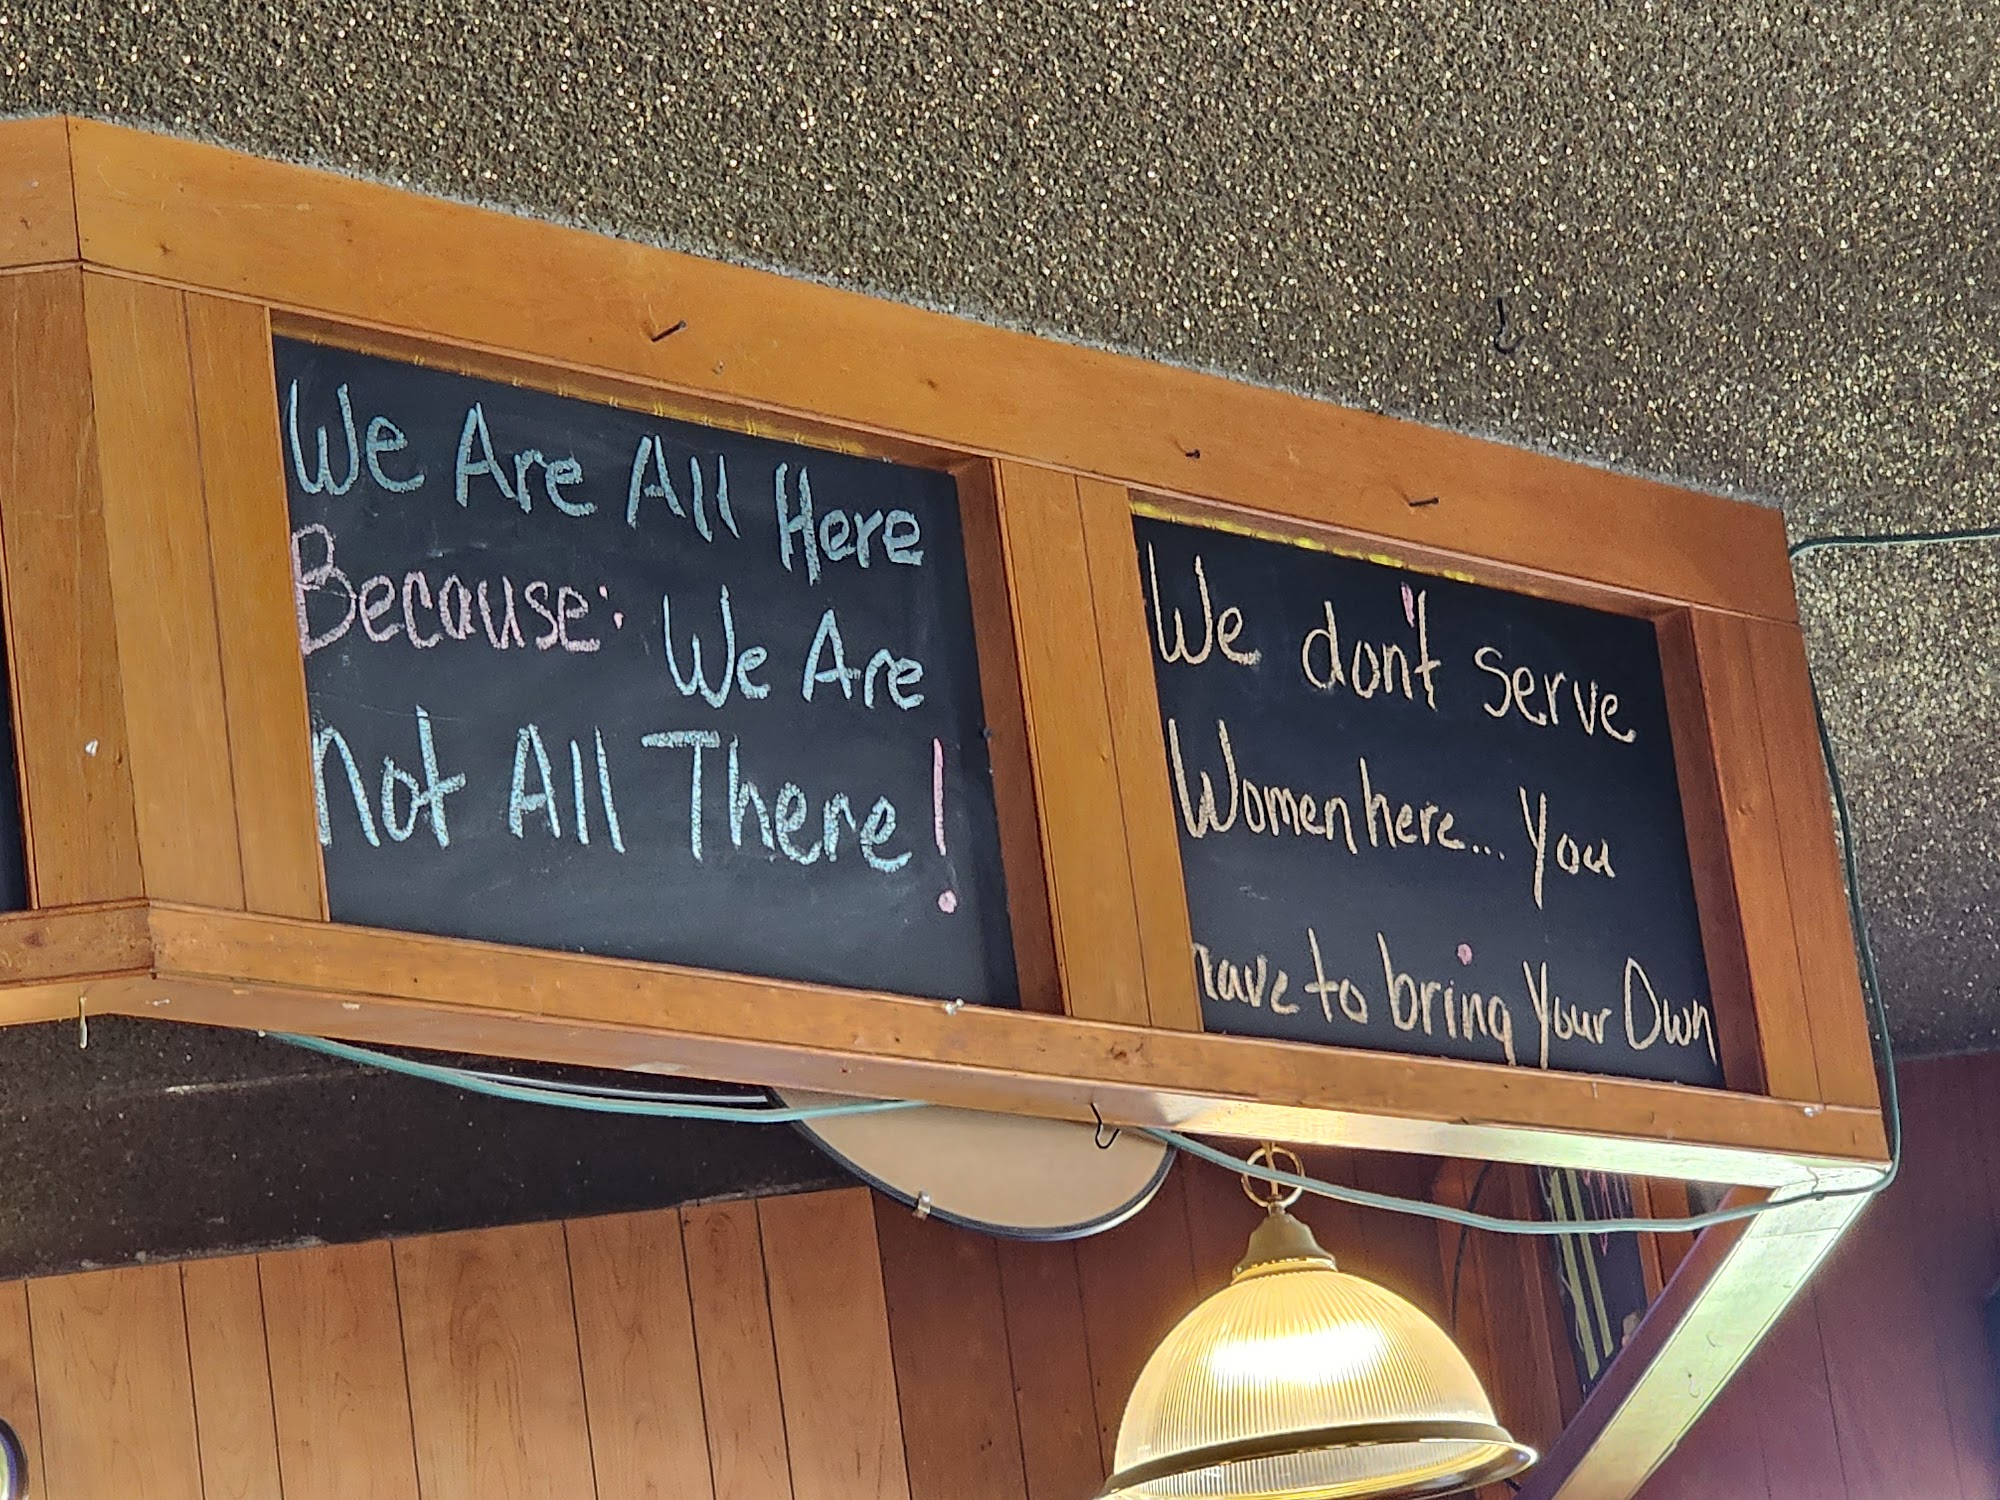 We Are All Here
Because: We Are
Not All There!
We don't serve
Women here... You
have to bring Your Own